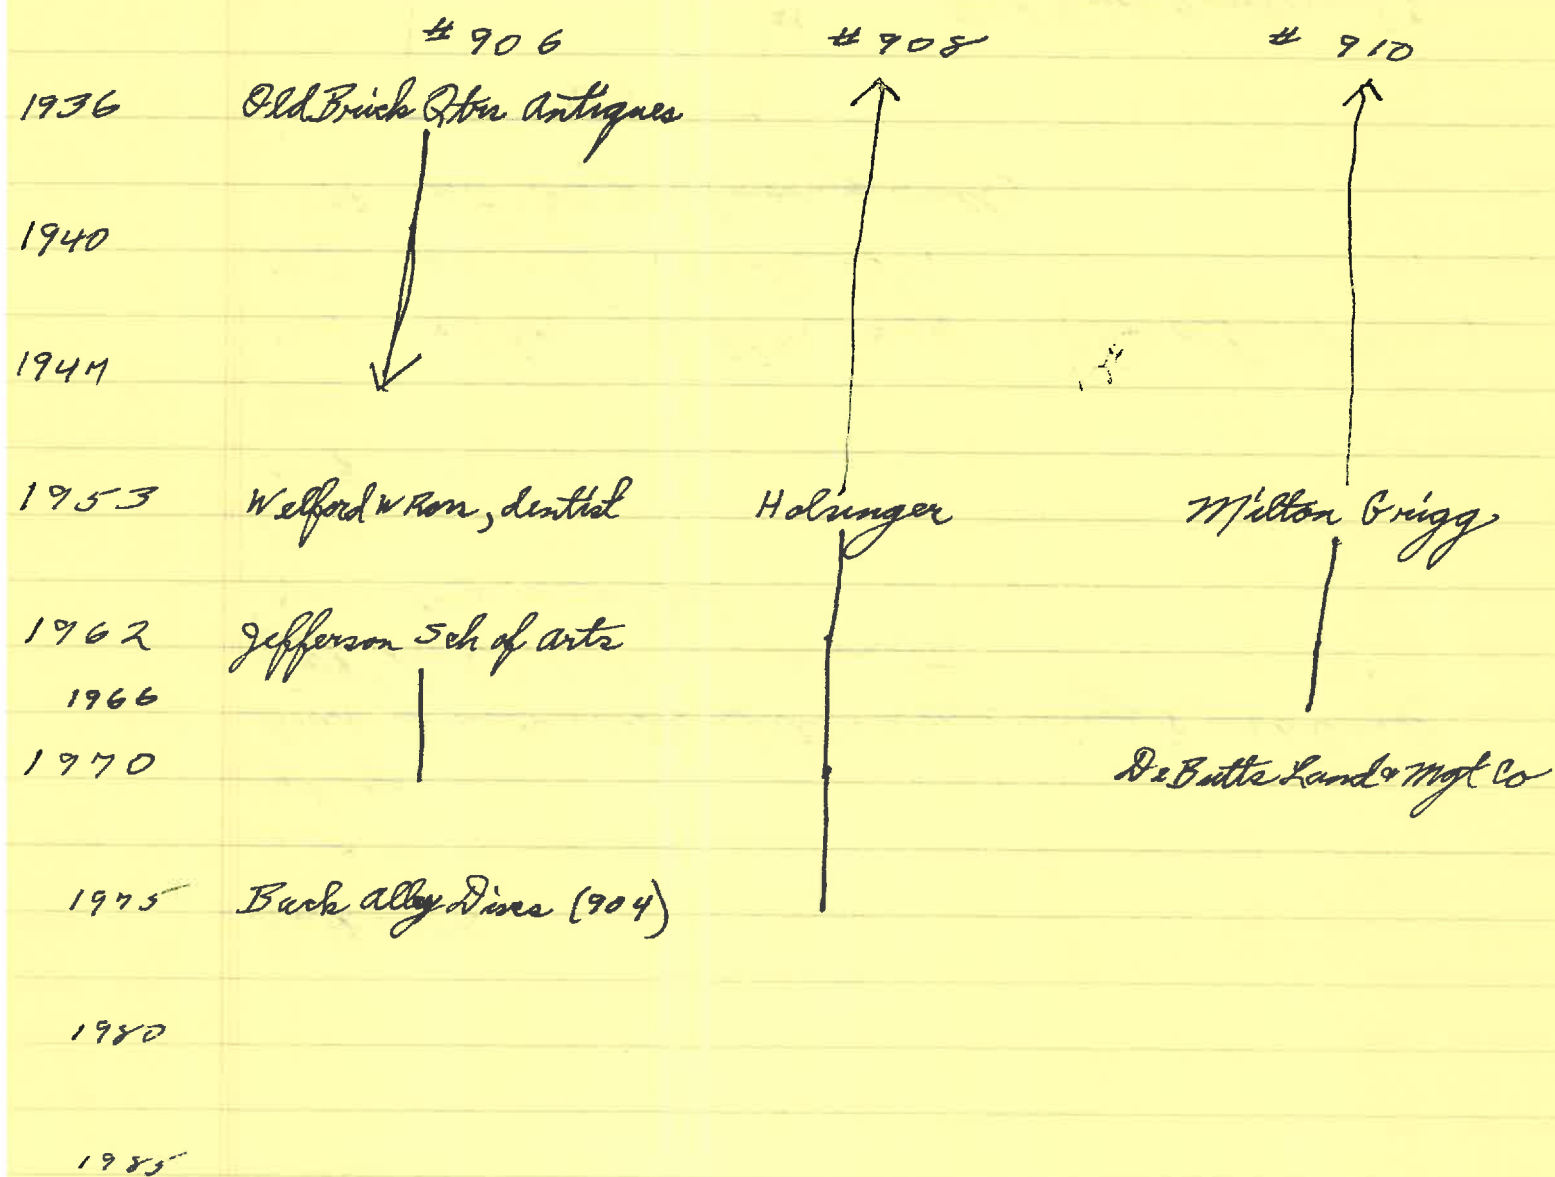 # 906 # 908 # 910
1936 Old Brick Qtrs Antiques
1940
1947
1953 Welford W Ross, dentist Holsinger Milton Grigg
1962 Jefferson Sch of Arts
1966
1970 DeButts Land & Mgt Co
1975 Back Alley Discs (904)
1980
1985